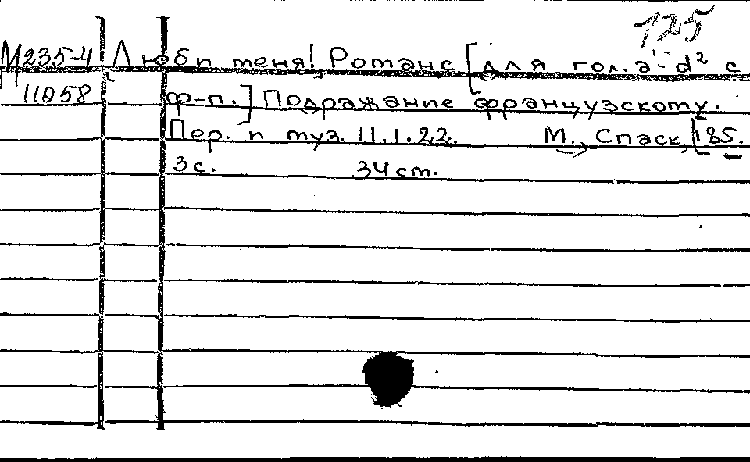 125
М235-4 Люби меня! Романс [для гол. a-d² с
11058 ф-п.] Подражание французскому.
Пер. и муз. П.П.22. М., Спаск, [185.
3 с. 34 ст.